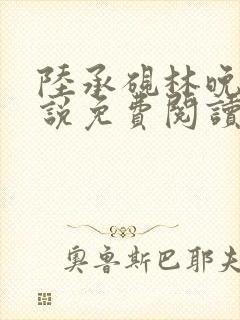 陸承硯林晚
說免費閱讀
奧魯斯巴耶夫